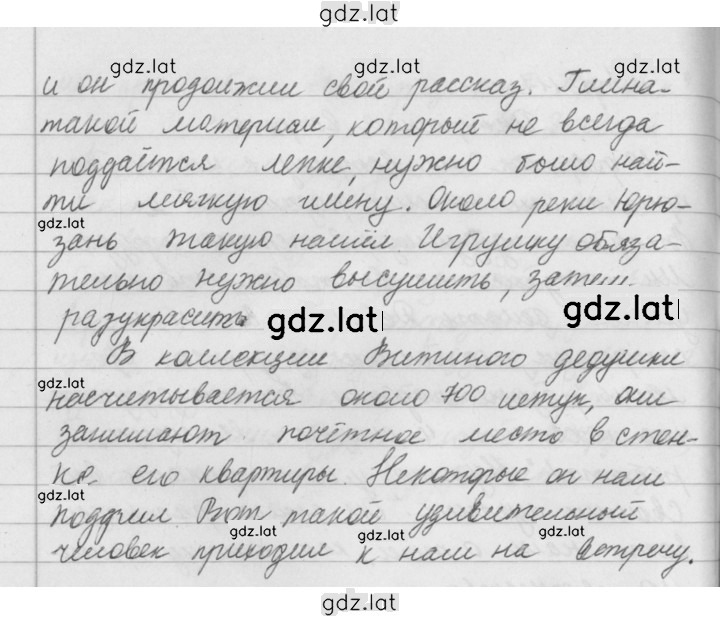 gdz.lat
и он продолжил свой рассказ. Глина-
gdz.lat gdz.lat
такой материал, который не всегда
поддаётся лепке, нужно было най-
ти мягкую глину. Около реки Юрю-
gdz.lat
зань такую нашёл. Игрушку обяза-
тельно нужно высушить, затем
разукрасить
gdz.lat gdz.lat
В коллекции Витиного дедушки
gdz.lat
насчитывается около 700 штук, они
занимают почётное место в стен-
ке его квартиры. Некоторые он нам
gdz.lat
подарил. Вот такой удивительный
gdz.lat gdz.lat gdz.lat
человек приходил к нам на встречу.
gdz.lat